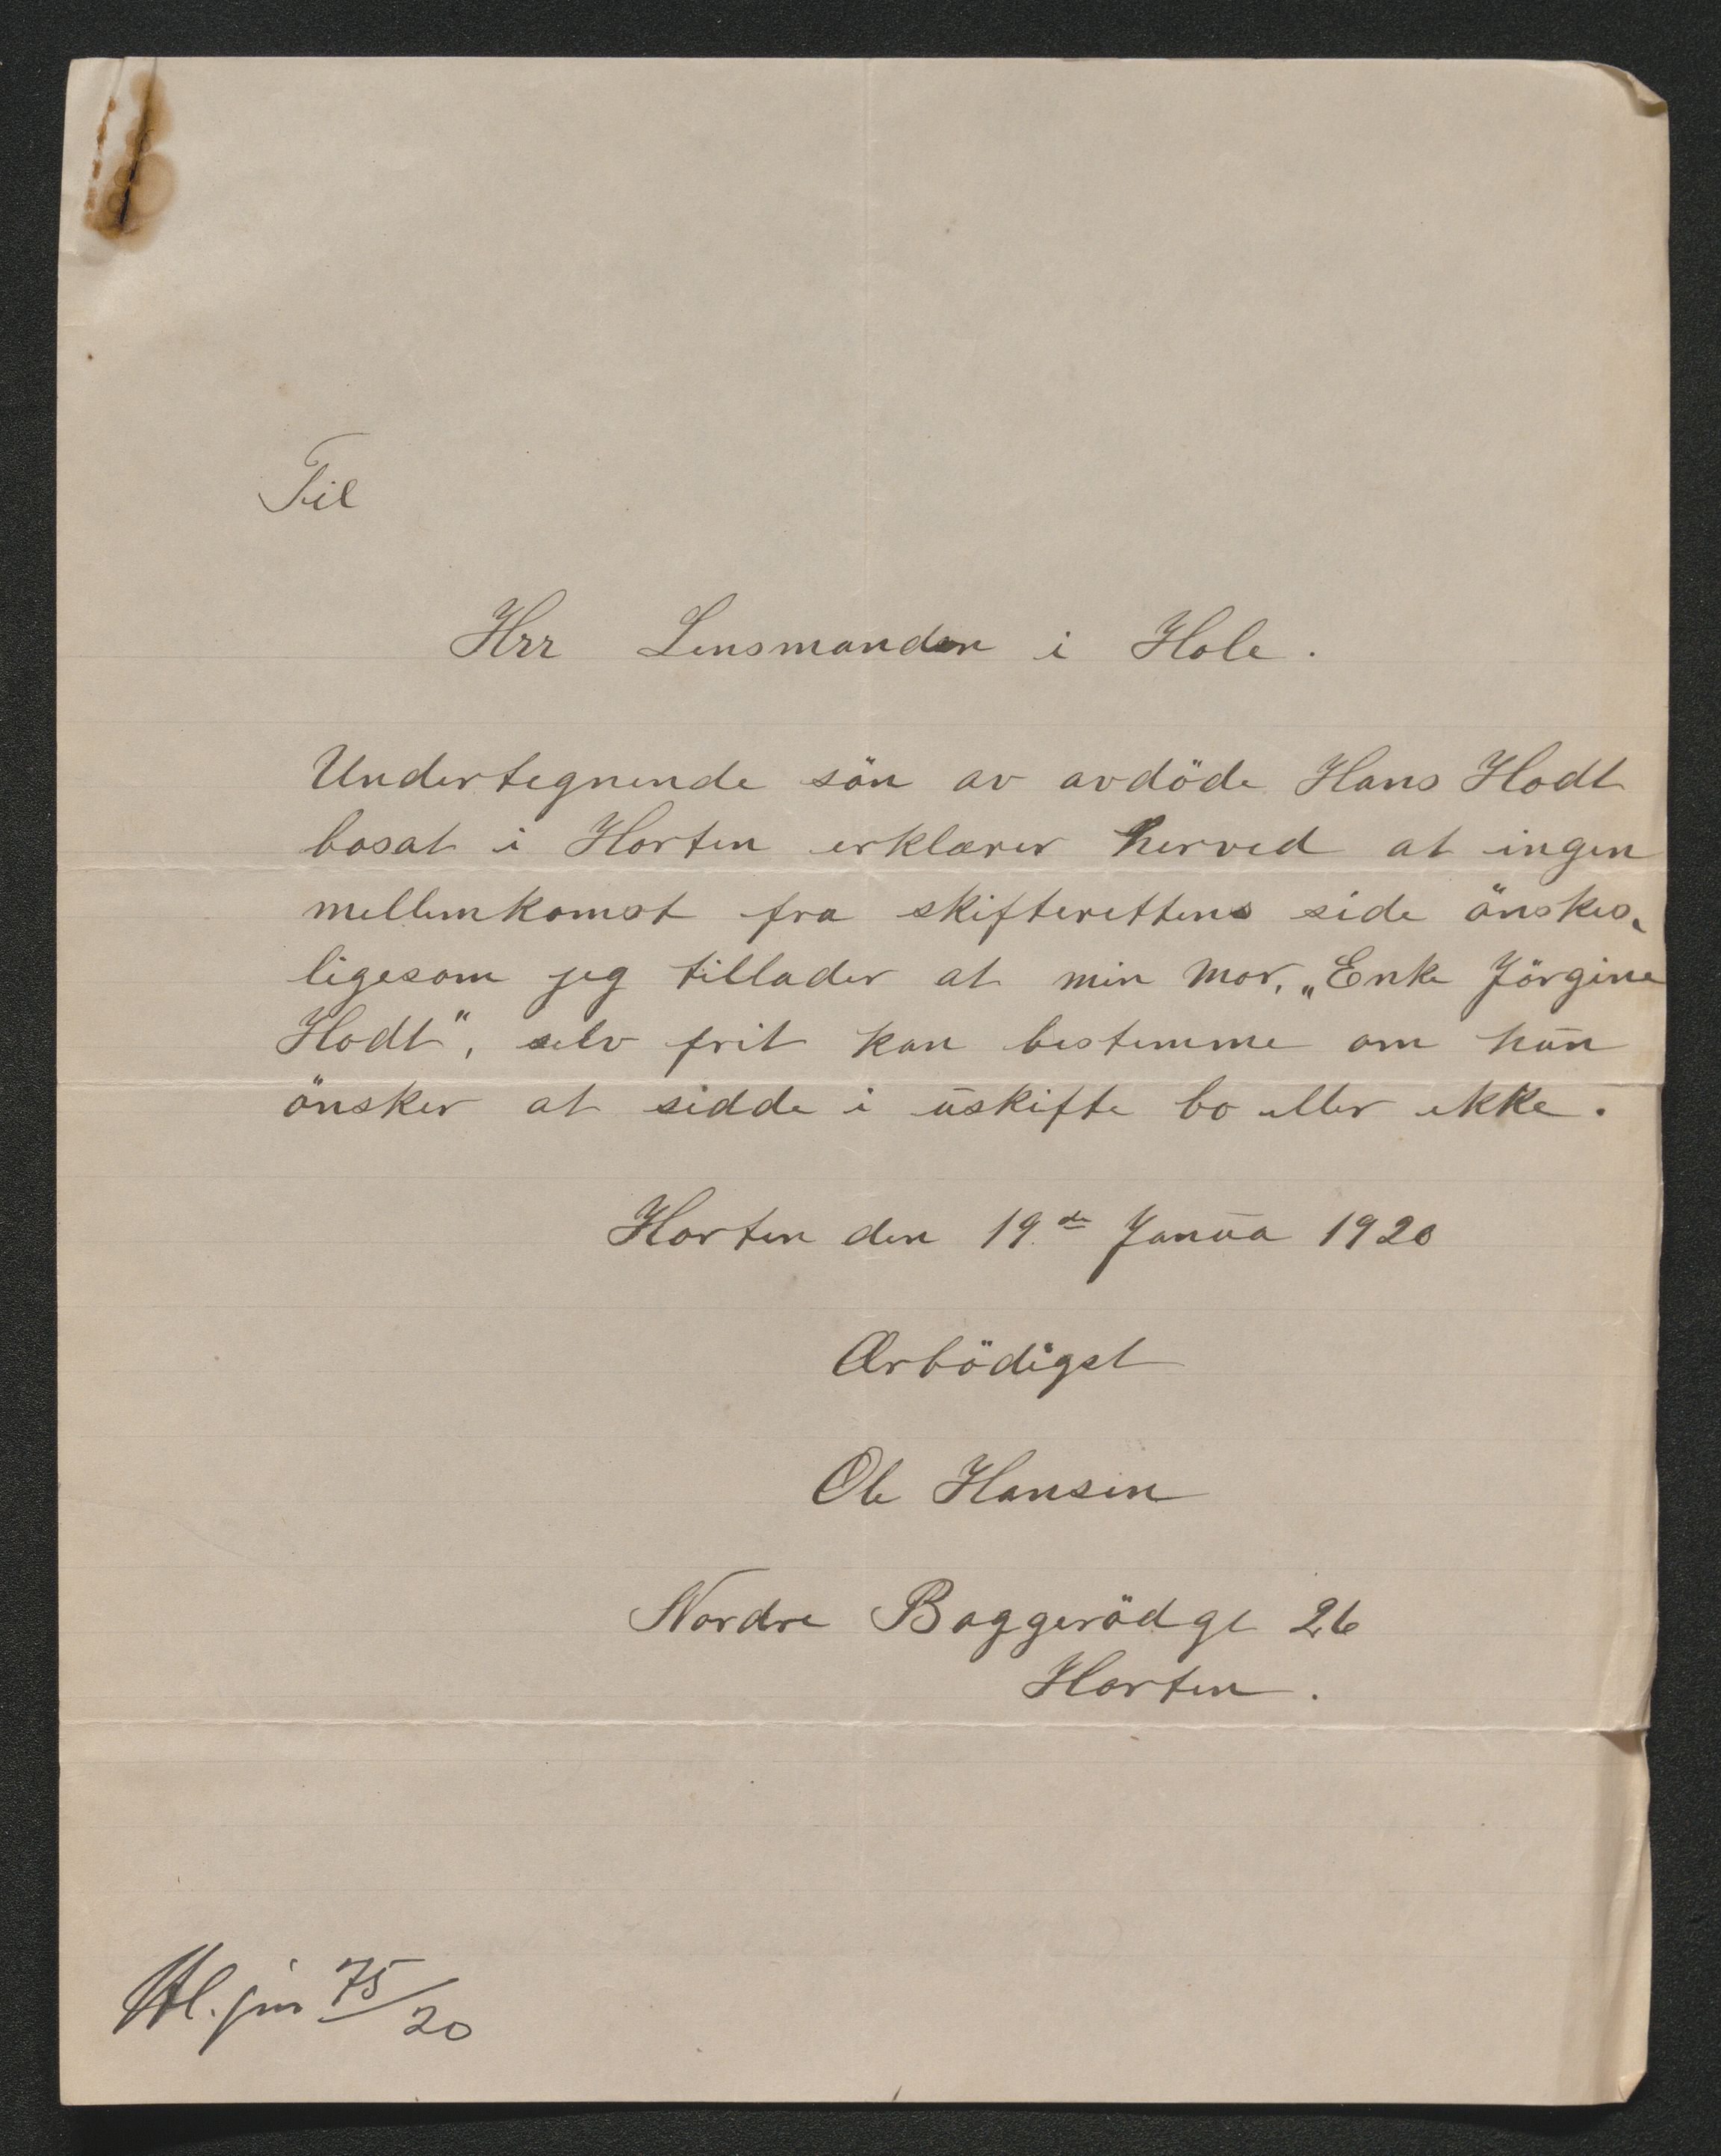 Til
Hrr Lensmanden i Hole.
Undertegnende sön av avdöde Hans Hodt
bosat i Horten erklærer herved at ingen
mellemkomst fra skifterettens side önskes,
ligesom jeg tillader at min mor, „Enke Jörgine
Hodt", selv frit kan bestemme om hun
önsker at sidde i uskifte bo eller ikke.
Horten den 19.de Janua 1920
Ærbödigst
Ole Hansen
Nordre Baggerödgt 26
Horten.
75/20